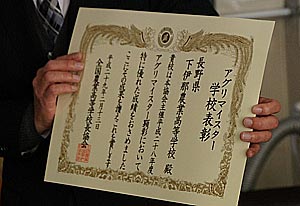 アグリマイスター
学校表彰
長野県
下伊那農業高等学校 殿
貴校は本協会主催平成二十八年度
アグリマイスター顕彰において
特に優れた成績をおさめました
ここにその成果を讃えこれを賞します
平成二十九年一月十三日
全国農業高等学校長協会